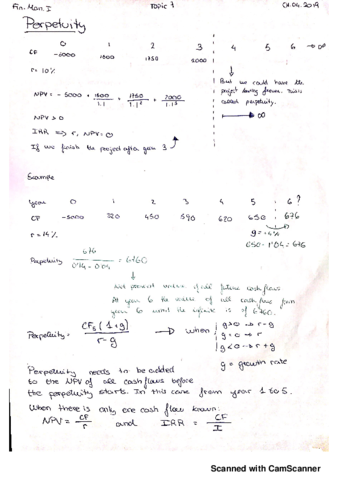 Fin. Man. I Topic 7 01.04.2019
Perpetuity
0 1 2 3 4 5 6 → ∞
CF -5000 1500 1750 2000
r = 10%
But we could have the
project going forever. This is
called perpetuity.
NPV = -5000 + 1500/1.1 + 1750/1.1² + 2000/1.1³
→ ∞
NPV > 0
IRR ⇒ r, NPV = 0
If we finish the project after year 3
Example
Year 0 1 2 3 4 5 6 ?
CF -5000 320 450 590 620 650 676
r = 14% g = 4%
650 · 1'04 = 676
Perpetuity 676 / 0'14 - 0'04 = 6760
Net present value of all future cashflows
At year 5 the value of all cash flows from
year 6 until the infinite is of 6760.
Perpetuity = CF5 (1+g) / r - g → when g>0 → r-g
g = 0 → r
g<0 → r+g
g = growth rate
Perpetuity needs to be added
to the NPV of all cashflows before
the perpetuity starts. In this case from year 1 to 5.
When there is only one cash flow known:
NPV = CF/r and IRR = CF/I
Scanned with CamScanner